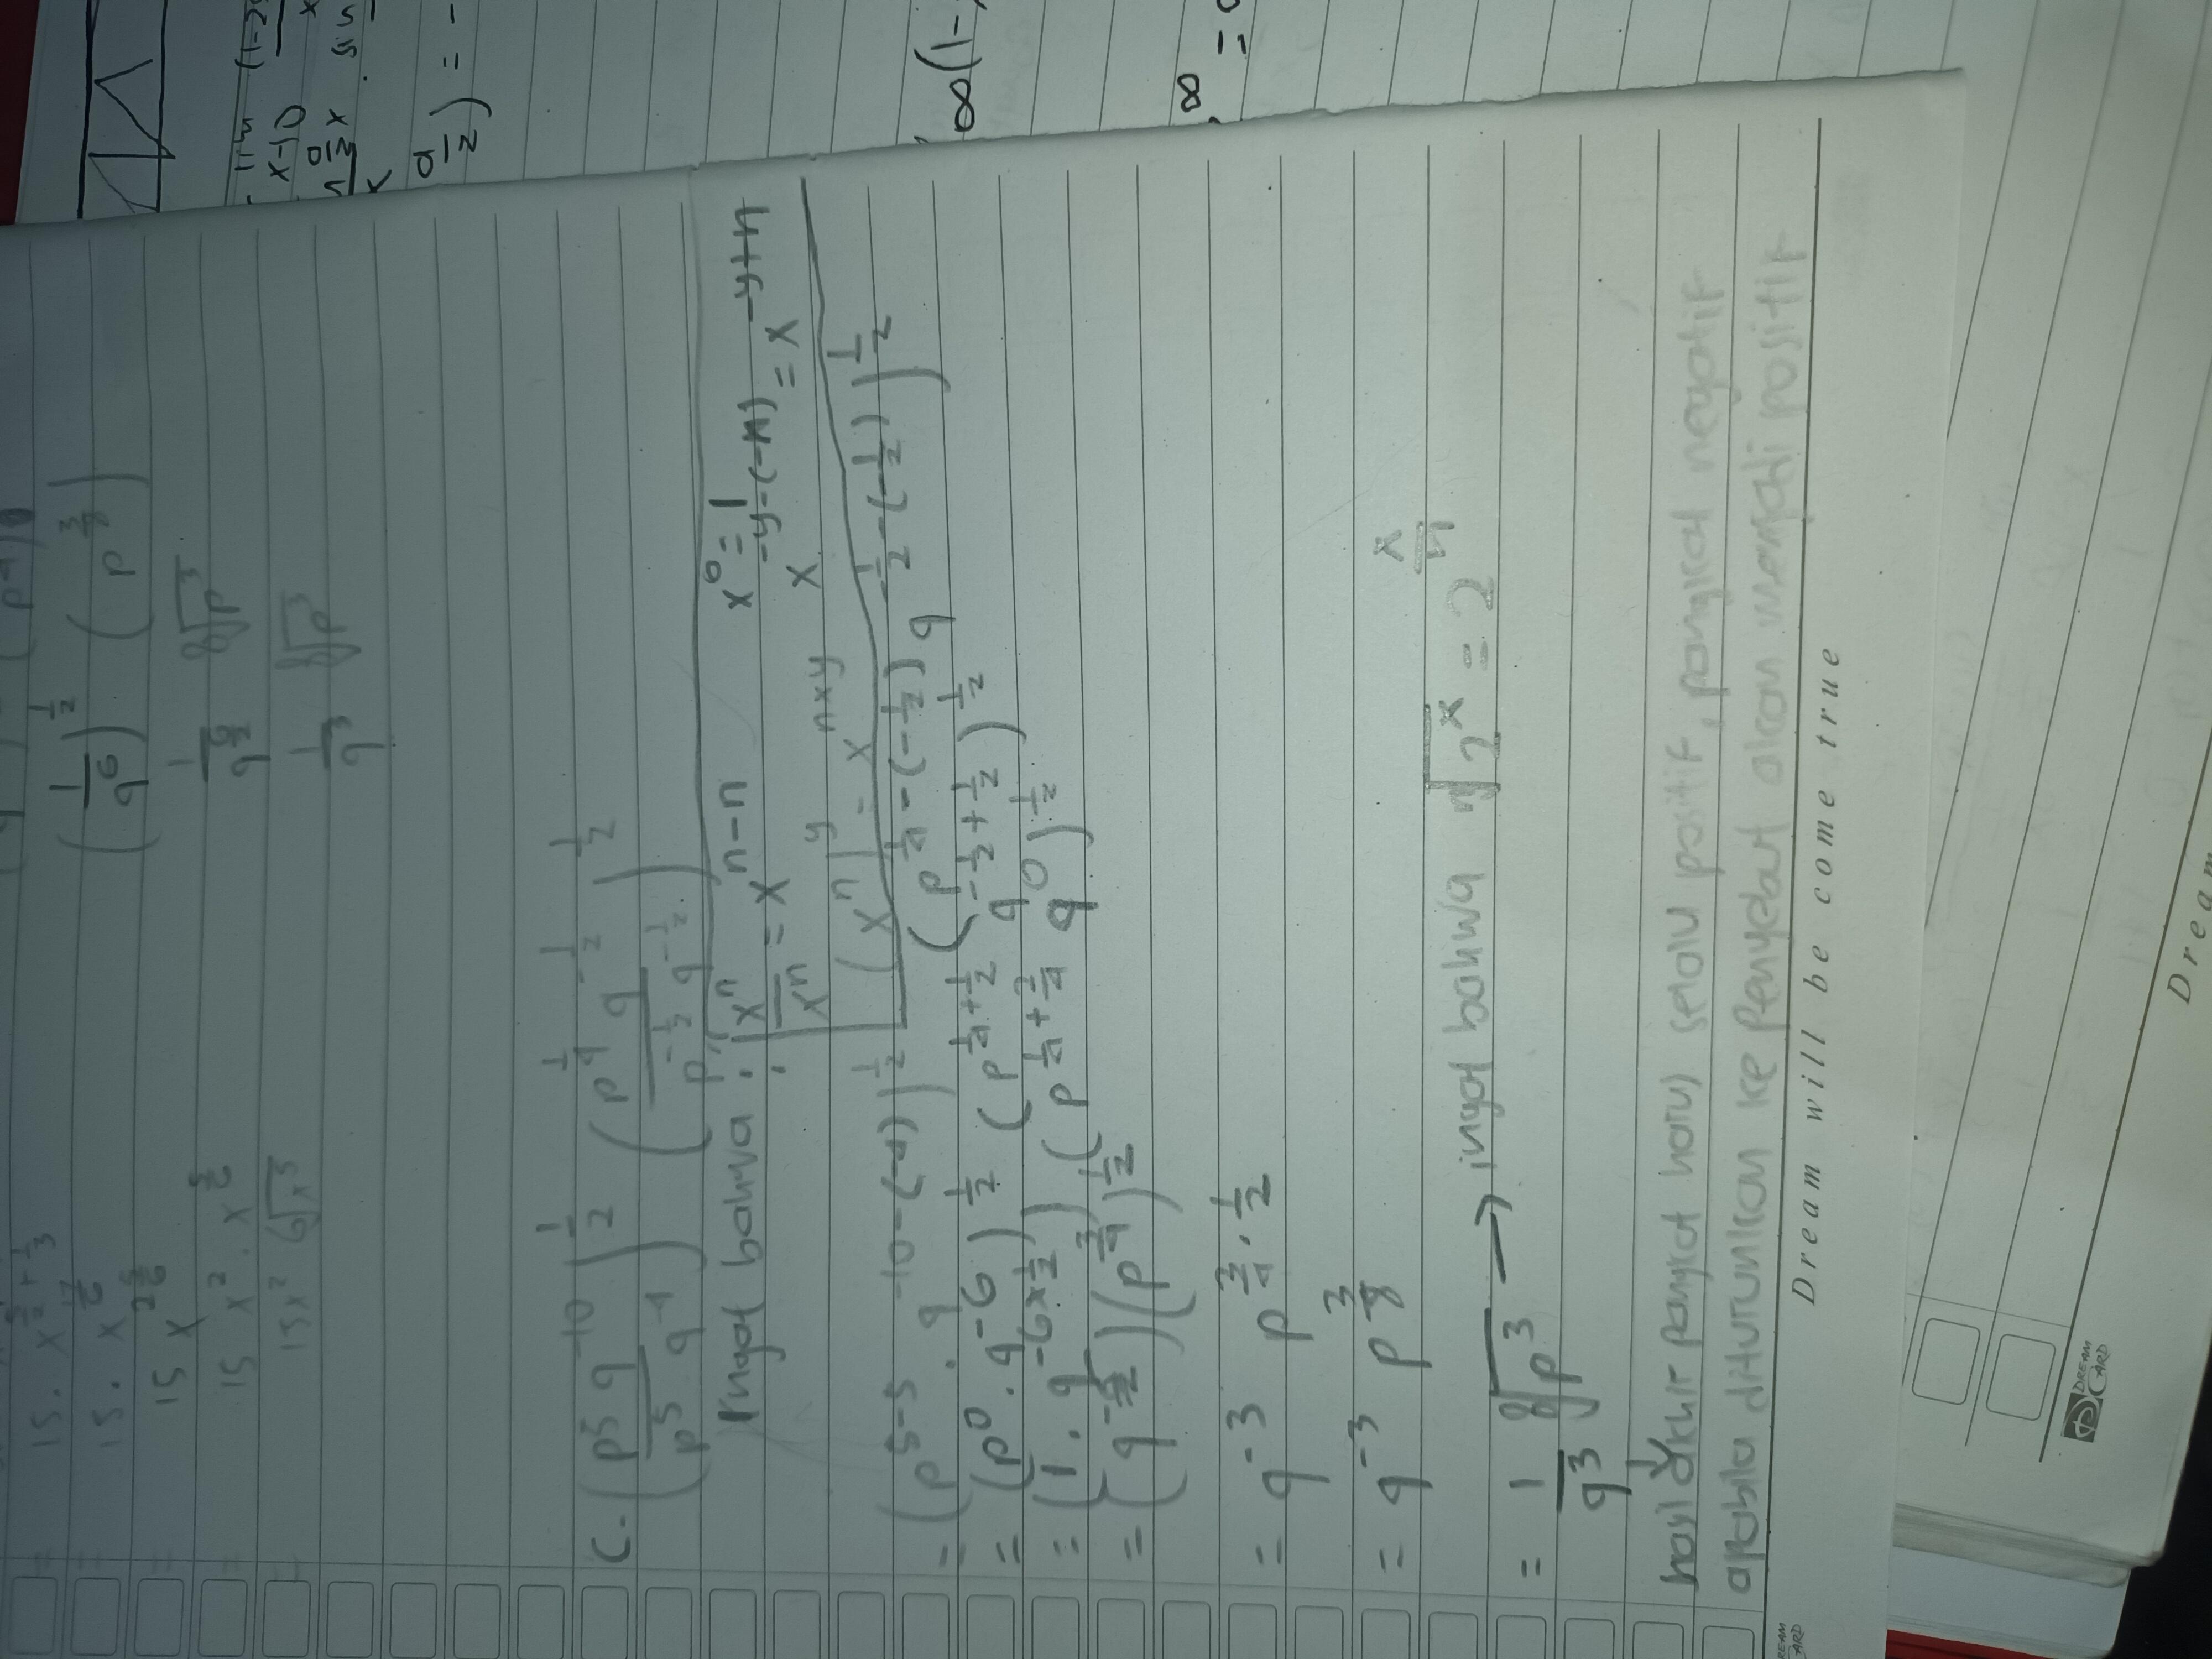 15 . x^(5/2 + 1/3)
= 15 . x^(17/6)
= 15 x^(2 5/6)
= 15 x² . x^(5/6)
= 15x² ⁶√x⁵
(1/q⁶)^(1/2) . (p^(3/8))
1/q^(6/2) ⁸√p³
1/q³ ⁸√p³
C. (p⁵ q⁻¹⁰ / p⁵ . q⁻⁴)^(1/2) (p^(1/4) q^(-1/2) / p^(-1/2) q^(-1/2))^(1/2)
Ingat bahwa : xⁿ/xⁿ = x^(n-n) x⁰ = 1
x^(-y-(-n)) = x^(-y+n)
(xⁿ)^y = x^(n×y)
= (p^(5-5) . q^(-10-(-4)))^(1/2) (p^(1/4-(-1/2)) q^(-1/2-(-1/2)))^(1/2)
= (p⁰ . q⁻⁶)^(1/2) (p^(1/4+1/2) q^(-1/2+1/2))^(1/2)
= (1 . q^(-6×1/2)) (p^(1/4+2/4) q⁰)^(1/2)
= (q^(-6/2)) (p^(3/4))^(1/2)
= q⁻³ p^(3/4 . 1/2)
= q⁻³ p^(3/8)
= 1/q³ ⁸√p³ → ingat bahwa ⁿ√2ˣ = 2^(x/n)
hasil akhir pangkat harus selalu positif, pangkat negatif
apabila diturunkan ke penyebut akan menjadi positif
Dream will be come true
DREAM CARD